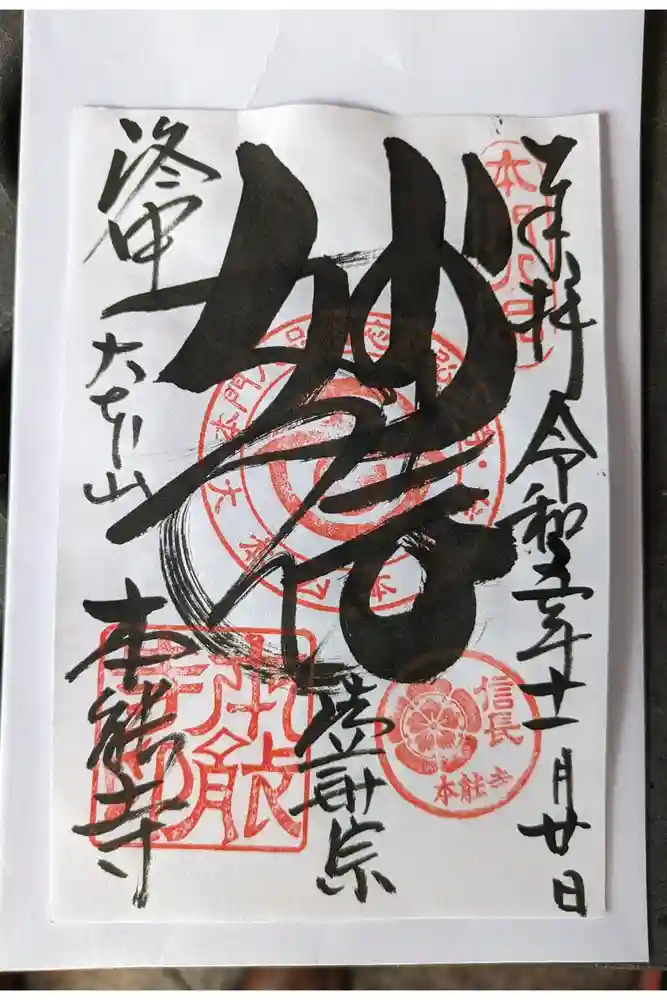 奉拝
令和五年十一月廿日
妙信
法華宗
洛中
大本山
本能寺
信長
本能寺
本能寺